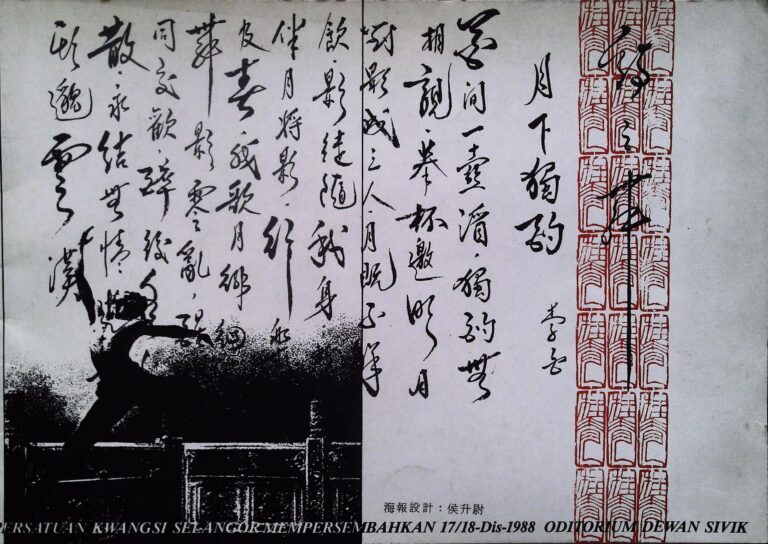 詩之舞
月下獨酌
李白
花间一壺酒·獨酌無
相親·舉杯邀明月
對影成三人·月既不解
飲·影徒隨我身·
伴月將影·行樂
及春·我歌月徘徊
舞影零亂·醒
同交歡·醉後各
散·永結無情
期邈雲漢
海報設計：侯升尉
ERSATUAN KWANGSI SELANGOR MEMPERSEMBAHKAN 17/18-Dis-1988 ODITORIUM DEWAN SIVIK